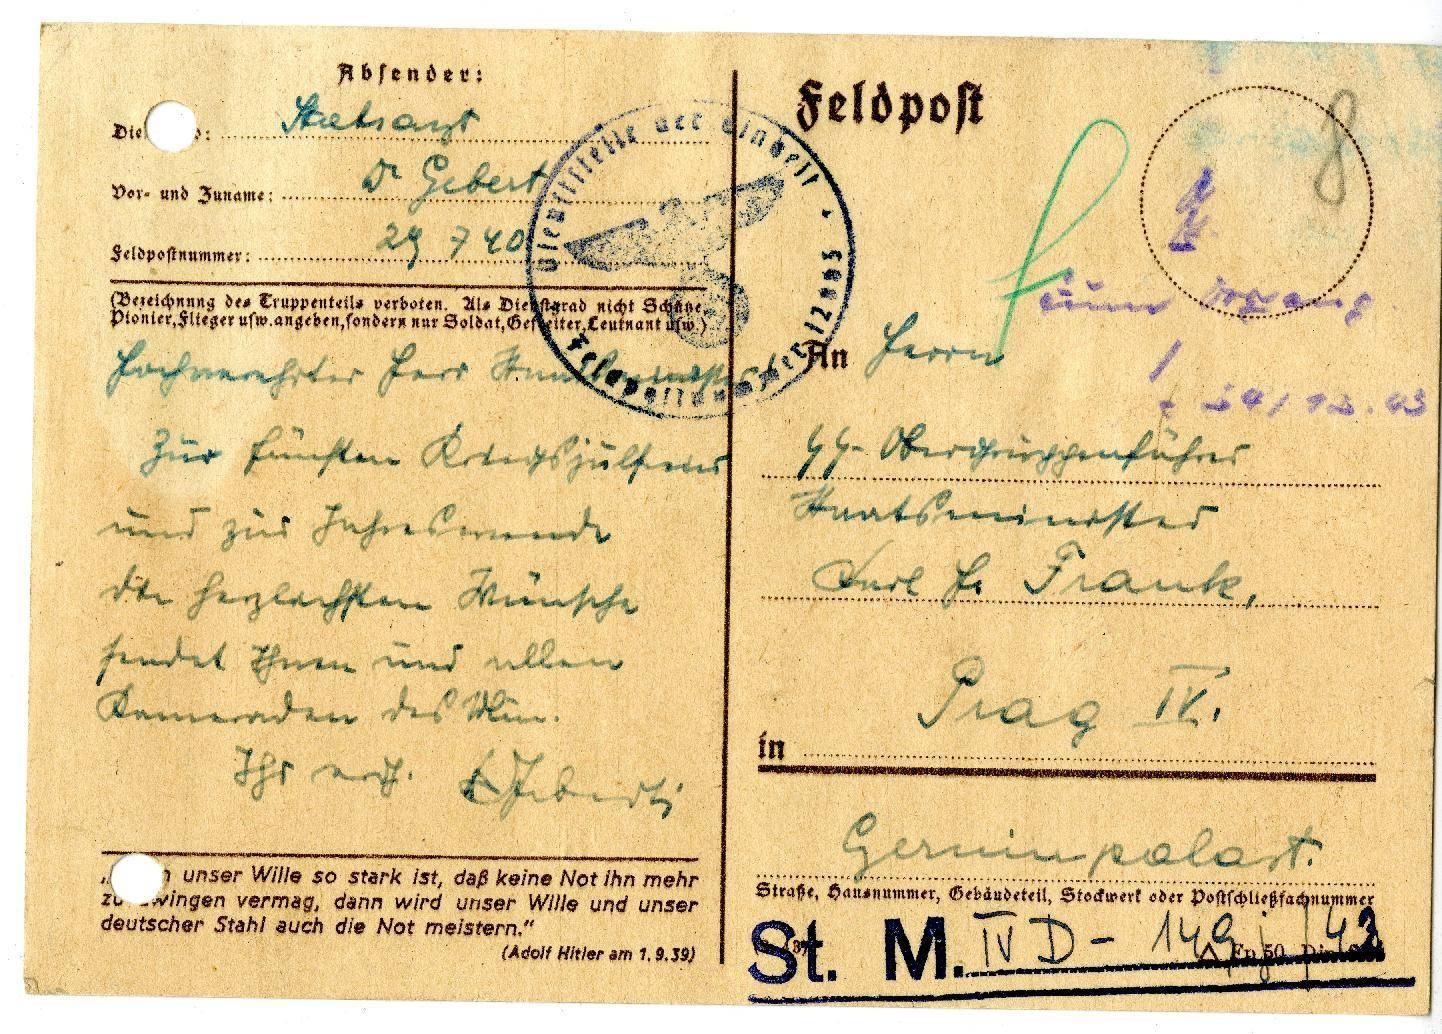 Absender:
Stabsarzt
Dr Gebert
Vor- und Zuname:
29 740
Feldpostnummer:
(Bezeichnung des Truppenteils verboten. Als Dienstgrad nicht Schütze,
Pionier, Flieger usw. angeben, sondern nur Soldat, Gefreiter, Leutnant usw.)
Hochverehrter Herr Staatsminister
Zur fünften Kriegsjulfeier
und zur Jahreswende
die herzlichsten Wünsche
sendet Ihnen und allen
Kameraden des Min.
Ihr erg. Gebert
unser Wille so stark ist, daß keine Not ihn mehr
zu zwingen vermag, dann wird unser Wille und unser
deutscher Stahl auch die Not meistern."
(Adolf Hitler am 1. 9. 39)
Dienststelle der Einheit
Feldpostnummer 12003
Feldpost
8
zum Vorgang
24/12.43
An Herrn
SS-Obergruppenführer
Staatsminister
Karl H. Frank,
Prag IV.
in
Czerninpalast.
Straße, Hausnummer, Gebäudeteil, Stockwerk oder Postschließfachnummer
St. M. IV D - 149 j / 43